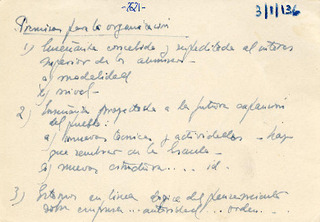 -7621-
3/1/136
Premisas para la organización
1) Enseñanza concebida y supeditada al interés
superior de los alumnos -
a) modalidad
b) nivel -
2) Enseñanza proyectada a la futura expansión
del pueblo:
a) nuevas técnicas y actividades - hay
que sembrar en la Escuela -
b) nuevas estructuras ..... id.
3) en línea lógica del pensamiento
empresa ... autoridad ... orden ...